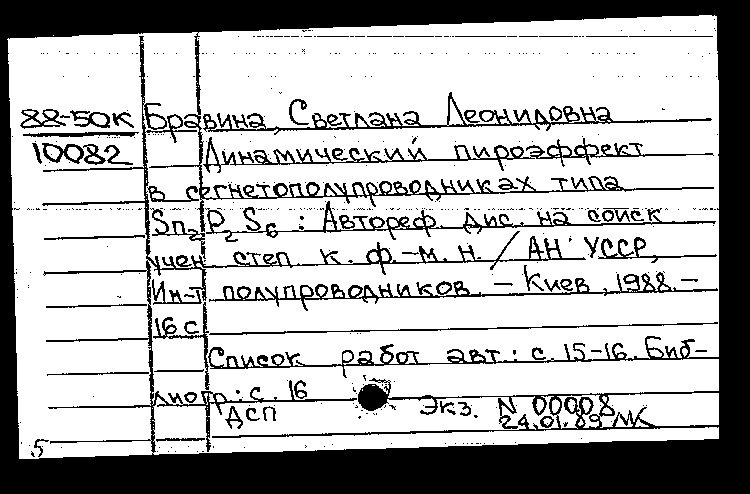 88-50К Бравина, Светлана Леонидовна
10082 Динамический пироэффект
в сегнетополупроводниках типа
Sn₂P₂S₆ : Автореф. дис. на соиск
учен степ к. ф.-м. н. / АН УССР,
Ин-т полупроводников. - Киев, 1988. -
16 с
Список работ авт.: с. 15-16. Биб-
лиогр.: с. 16
ДСП Экз. N 00008
24.01.89 МК
5